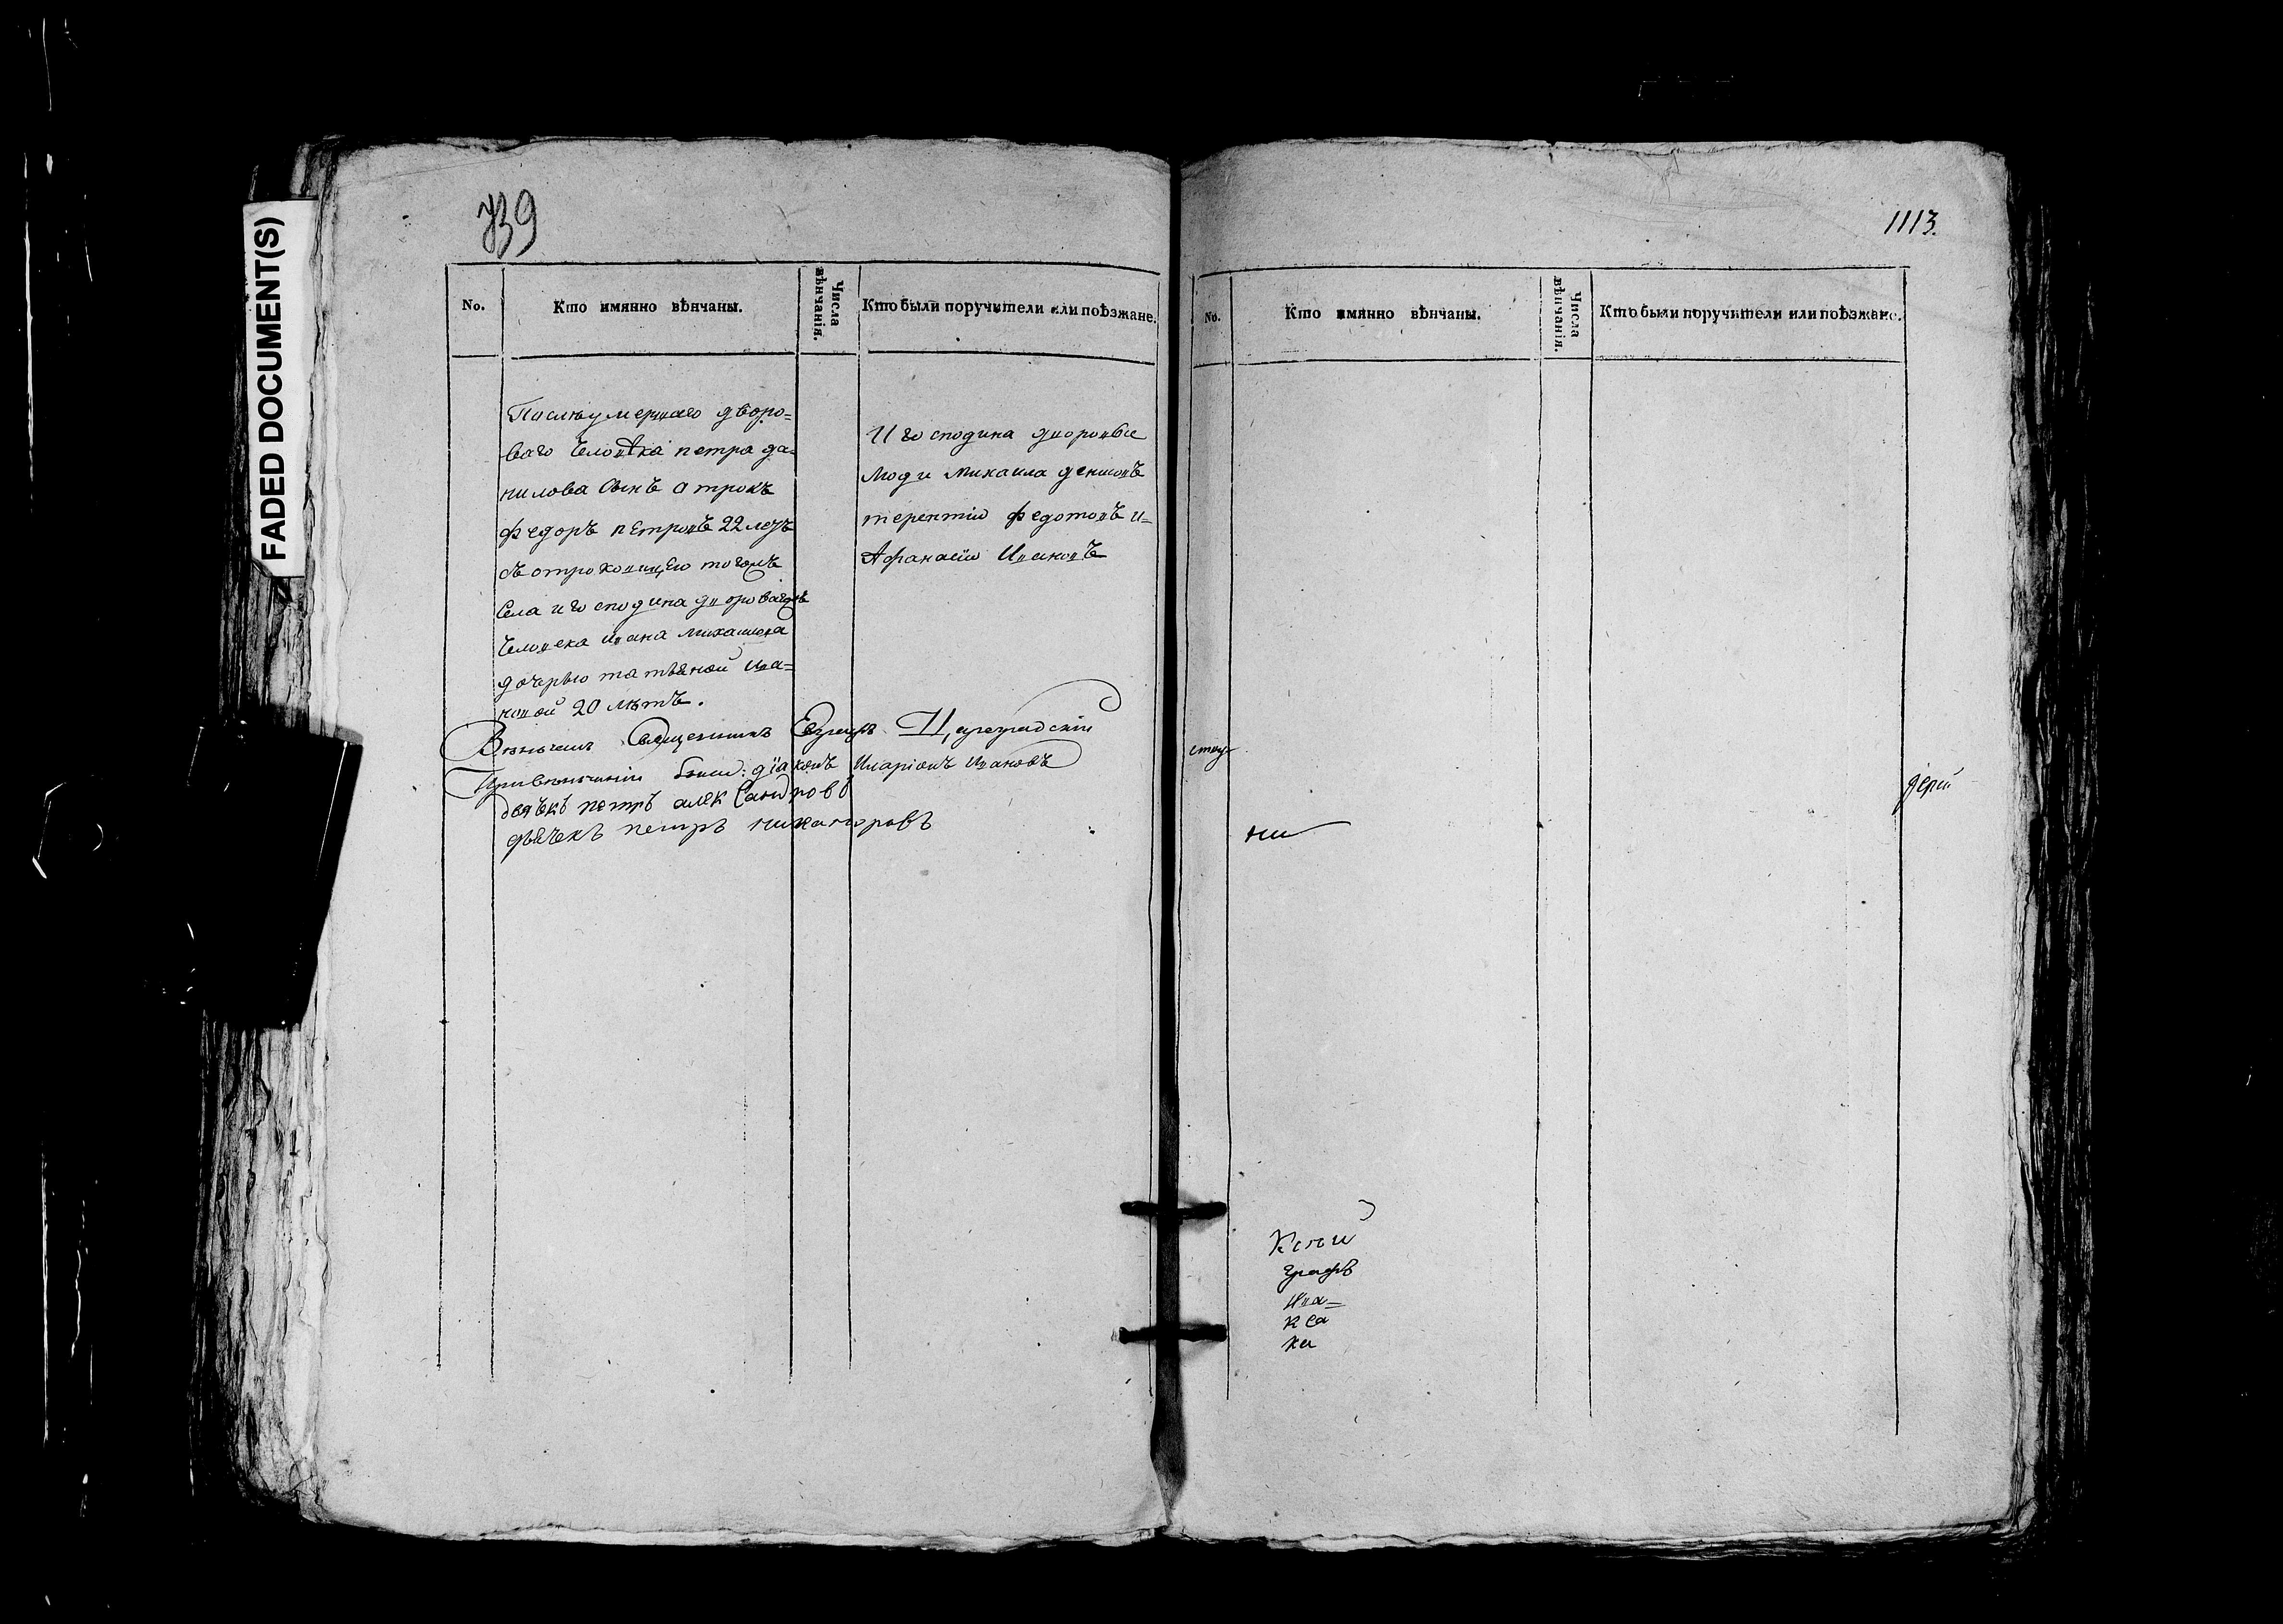 FADED DOCUMENT(S)
739
No.
Кто имянно вѣнчаны.
Числа вѣнчанія.
Кто были поручители или поѣзжане.
Послѣ умершаго дворо=
ваго человѣка петра да=
нилова сынъ отрокъ
федоръ петровъ 22 летъ
съ отроковицею тогожъ
села и господина двороваго
человека ивана михаилова
дочерью татьяной ива=
новой 20 лѣтъ.
И господина дворовые
люди михаила
терентій федотовъ и=
Афанасій Ивановъ
Вѣнчалъ Священникъ Евграфъ Цареградскій
При вѣнчаніи были: діаконъ Иларіонъ Ивановъ
дьячекъ петръ александровъ
дьячекъ петръ никаноровъ
1113.
No.
Кто имянно вѣнчаны.
Числа вѣнчанія.
Кто были поручители или поѣзжане.
дерій
ни
графъ
Ива=
кса
ка